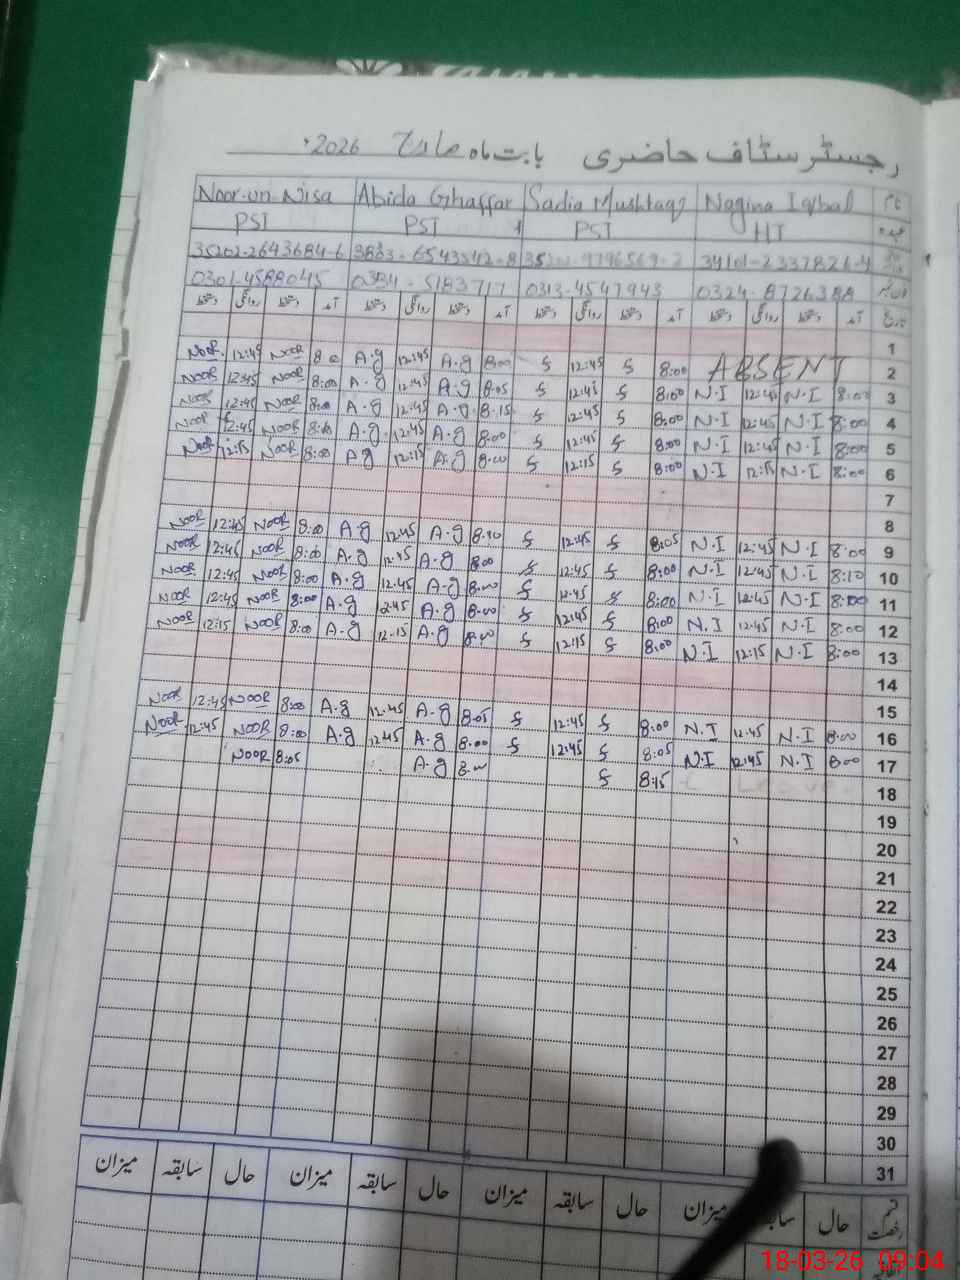 رجسٹر سٹاف حاضری بابت ماہ مارچ 2026ء
نام Nagina Iqbal Sadia Mushtaq Abida Ghaffar Noor-un-Nisa
عہدہ HT PST PST PST
34101-2337826-4 35201-9796569-2 6543542-8 35202-2643684-6
فون نمبر 0324-8726388 0313-4547943 0334-5183717 0301-4588045
تاریخ آمد دستخط روانگی دستخط آمد دستخط روانگی دستخط آمد دستخط روانگی دستخط آمد دستخط روانگی دستخط
1
NOOR 12:45 NOOR 8:00 A.g 12:45 A.g 8:00 12:45 8:00 ABSENT 2
NOOR 12:45 NOOR 8:00 A.g 12:45 A.g 8:05 12:45 8:00 N.I 12:45 N.I 8:00 3
NOOR 12:45 NOOR 8:00 A.g 12:45 A.g 8:15 12:45 8:00 N.I 12:45 N.I 8:00 4
NOOR 12:45 NOOR 8:00 A.g 12:45 A.g 8:00 12:45 8:00 N.I 12:45 N.I 8:00 5
NOOR 12:15 NOOR 8:00 A.g 12:15 A.g 8:00 12:15 8:00 N.I 12:15 N.I 8:00 6
7
8
NOOR 12:45 NOOR 8:00 A.g 12:45 A.g 12:45 8:05 N.I 12:45 N.I 8:00 9
NOOR 12:45 NOOR 8:00 A.g 12:45 A.g 8:00 12:45 8:00 N.I 12:45 N.I 8:10 10
NOOR 12:45 NOOR 8:00 A.g 12:45 A.g 8:00 12:45 8:00 N.I 12:45 N.I 8:00 11
NOOR 12:45 NOOR 8:00 A.g 12:45 A.g 8:00 12:45 8:00 N.I 12:45 N.I 8:00 12
NOOR 12:15 NOOR 8:00 A.g 12:15 A.g 8:00 12:15 8:00 N.I 12:15 N.I 8:00 13
14
15
NOOR 12:45 NOOR 8:00 A.g 12:45 A.g 8:05 12:45 8:00 N.I 12:45 N.I 8:00 16
NOOR 12:45 NOOR 8:00 A.g 12:45 A.g 8:00 12:45 8:05 N.I 12:45 N.I 8:00 17
NOOR 8:05 A.g 8:00 8:15 18
19
20
21
22
23
24
25
26
27
28
29
30
31
قسم رخصت حال سابقہ میزان حال سابقہ میزان حال سابقہ میزان حال سابقہ میزان
18-03-26 09:04